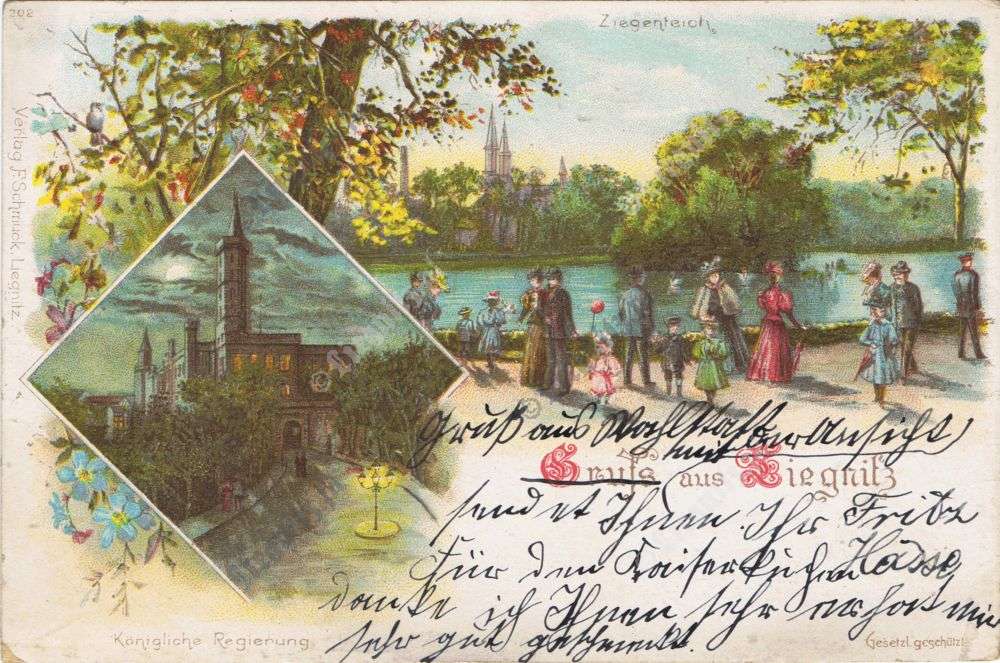 208
Ziegenteich.
Verlag F. Schmuck, Liegnitz.
Gruß aus Wahlstatt
mit der Ansicht
Gruss aus Liegnitz
sendet Ihnen Ihr Fritz
Hasse
Für den Kaiserkuchen
danke ich Ihnen sehr er hat mir
sehr gut geschmeckt.
Königliche Regierung
Gesetzl. geschützt.